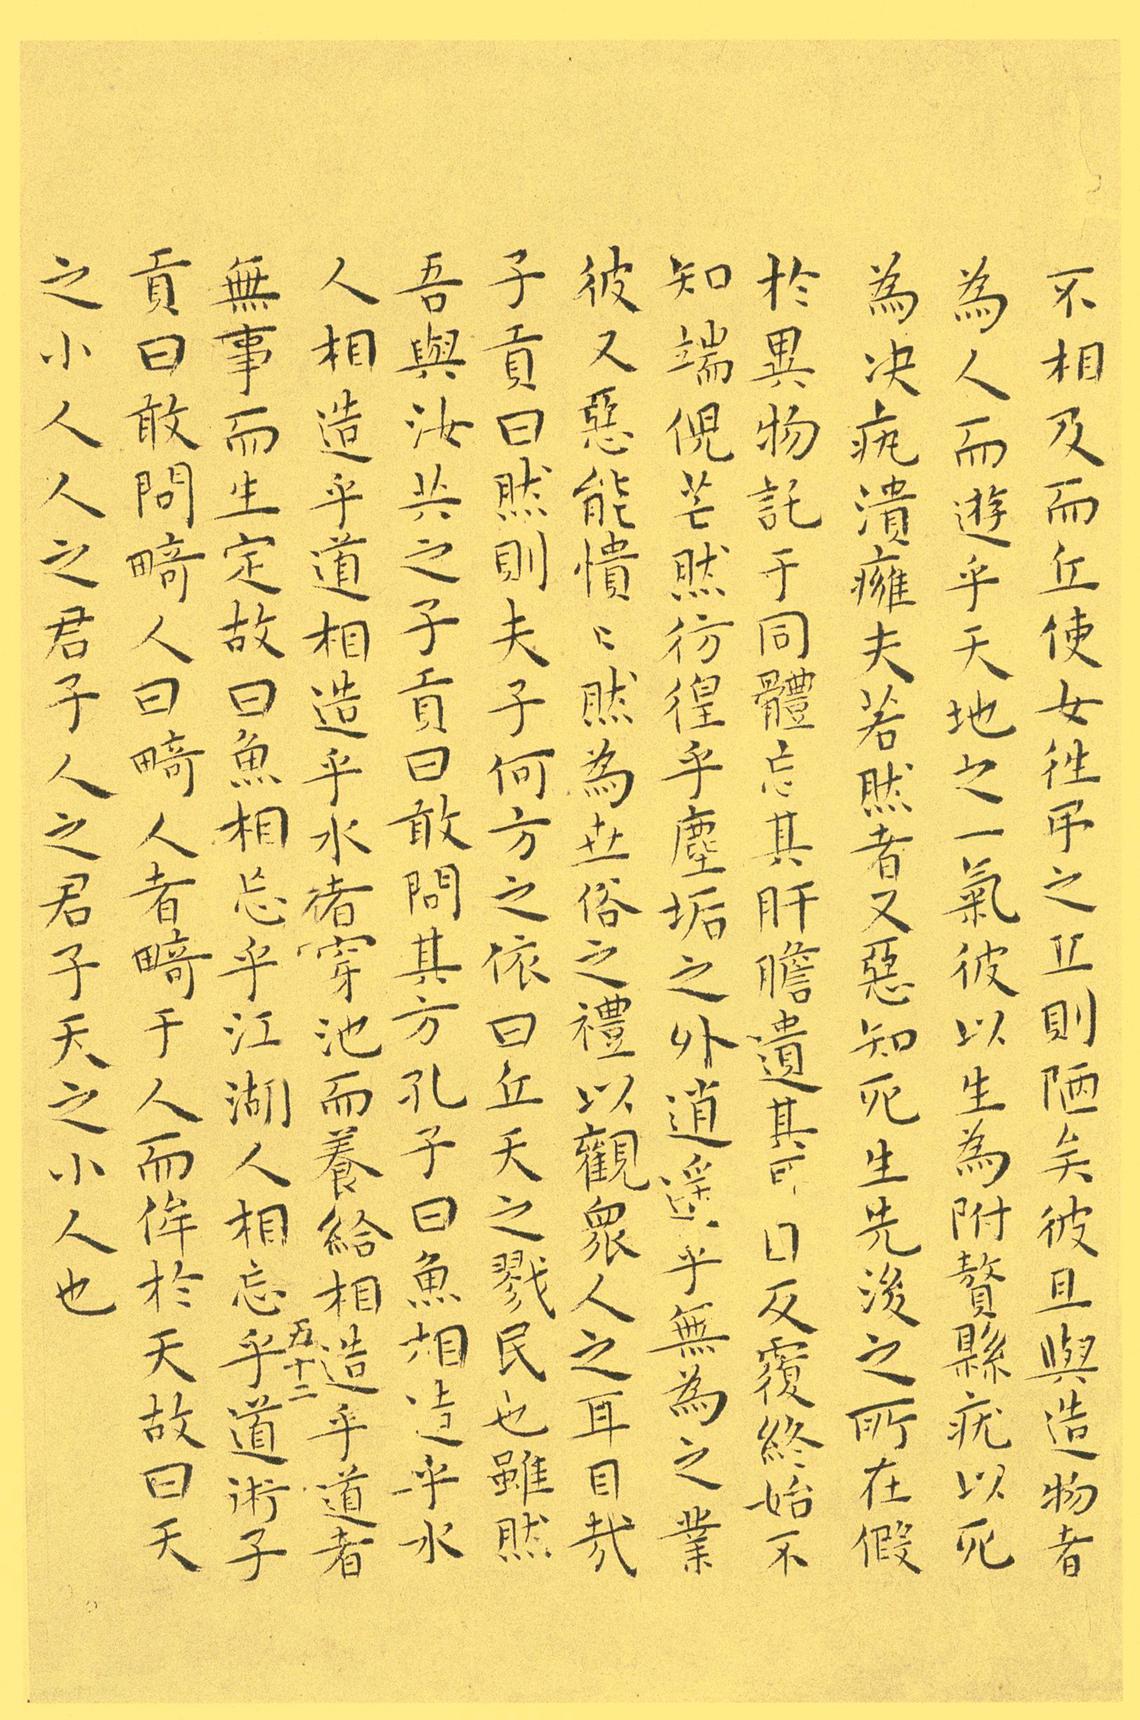 不相及而丘使女徃弔之丘則陋矣彼且與造物者
為人而遊乎天地之一氣彼以生為附贅縣疣以死
為决疻潰癰夫若然者又惡知死生先後之所在假
於異物託于同體忘其肝膽遺其耳目反覆終始不
知端倪芒然彷徨乎塵垢之外逍遥乎無為之業
彼又惡能憒〻然為世俗之禮以觀衆人之耳目哉
子貢曰然則夫子何方之依曰丘天之戮民也雖然
吾與汝共之子貢曰敢問其方孔子曰魚相造乎水
人相造乎道相造乎水者穿池而養給相造乎道者
五十二
無事而生定故曰魚相忘乎江湖人相忘乎道術子
貢曰敢問畸人曰畸人者畸于人而侔於天故曰天
之小人人之君子人之君子天之小人也